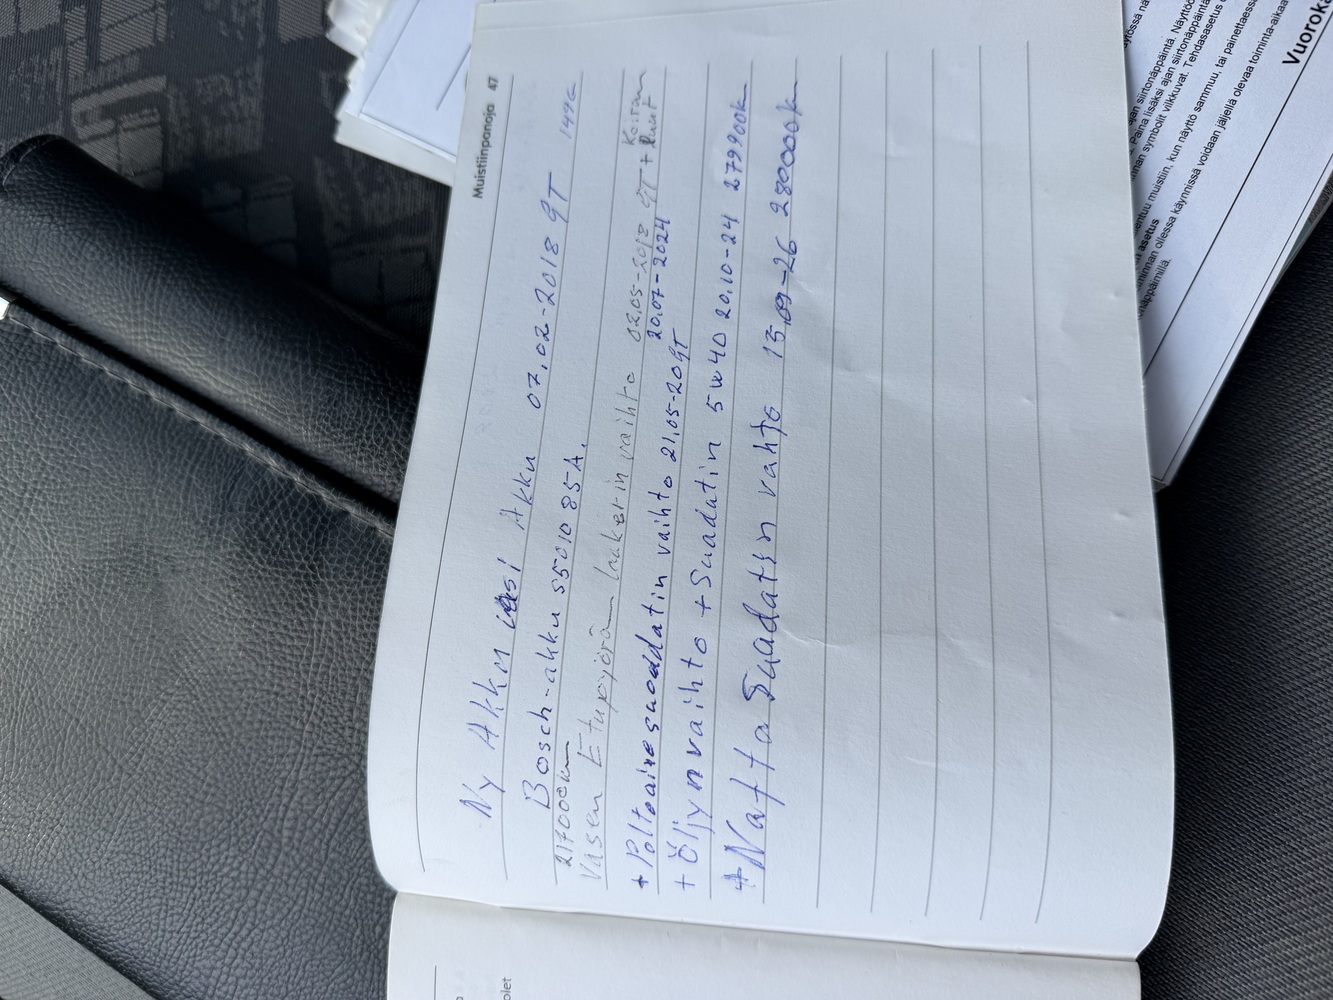 Muistiinpanoja 47
Ny Akkm uusi Akku 07.02-2018 GT 149€
Bosch-akku S5010 85A.
217000km
Vasen Etupyörän laakerin vaihto 02.05-2018 GT + Koiran
20.07-2024
+ Polttoainesuoddatin vaihto 21.05-20 GT
+ Öljynvaihto + Suadatin 5w40 20.10-24 279900k
+ Nafta Suadatin vahto 13.09-26 280000k
Vuoroka
ytössä nä
ajan siirtonäppäintä. Näyttöö
Paina lisäksi ajan siirtonäppäintä
nnan symbolit vilkkuvat. Tehdasasetus
entuu muistiin, kun näyttö sammuu, tai painettaessa
n asetus
iminnan ollessa käynnissä voidaan jäljellä olevaa toiminta-aikaa
näppäimillä.
olet